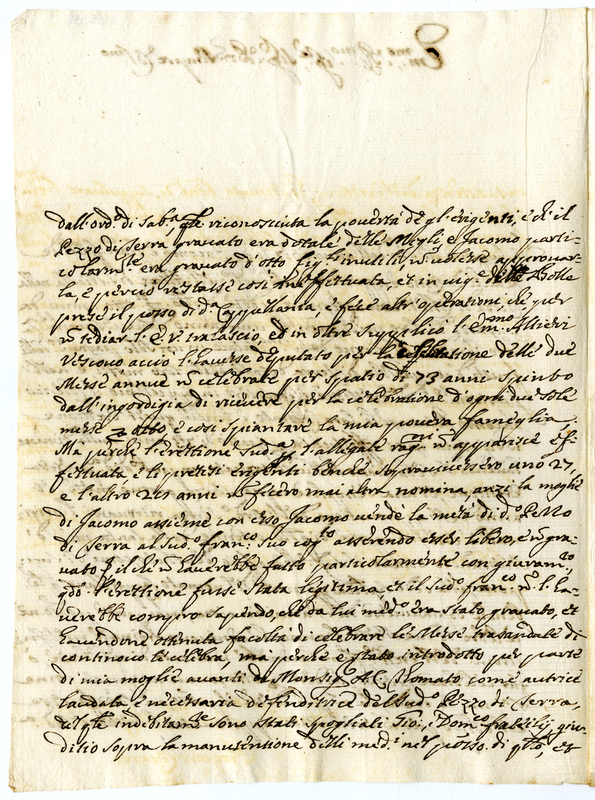 dall'ord.o di Sab.a, q.le riconosciuta la povertà de gl'erigenti, e ch'il
Pezzo di Serra gravato era dotale delle Mogli, e Jacomo parti-
colarm.te era gravato d'otto figli inutili, ñ volerse approvar-
la, e perciò restasse così ineffettuata, et in vig.e delle Bolle
prese il posso di d.a Cappellania, e fece altr'operationi, che per
ñ tediar l'E. V. tralascio, ed in oltre supplicò l'Em.mo Altieri
Vescovo acciò l'havesse deputato per la celebratione delle due
Messe annue ñ celebrate per spatio di 73 anni spinto
dall'ingordigia di ricevere per la celebratione d'ogni due sole
messe otto e così spiantare la mia povera fameglia.
Ma perche l'erettione sud.a l'allegate rag.ni ñ apparisce ef-
fettuata, e li pretesi erigenti benche sopravivessero uno 27,
e l'altro anni ñ fecero mai altra nomina, anzi la moglie
di Jacomo assieme con esso Jacomo vendè la metà di d.o Pezzo
di Serra al sud.o Fran.co suo cog.to asserendo esser libero, e ñ gra-
vato, il che ñ haverebbe fatto particolarmente con giuram.to
q.do l'erettione fusse stata legitima, et il sud.o Fran.co ñ l'ha-
verebbe compro sapendo, che da lui med.o era stato gravato, et
havendone ottenuta facoltà di celebrare le Messe trasandate di
continoio le celebra, ma perche è stato introdotto per parte
di mia moglie avanti di Monsig. A. C. Thomato come autrice
laudata, e necessaria defenditrice del sud.o Pezzo di Serra,
del q.le indebitam.te sono stati spogliati Gio: e Dom.co fratelli giu-
ditio sopra la manutentione delli med.i nel posso. di q.llo, et